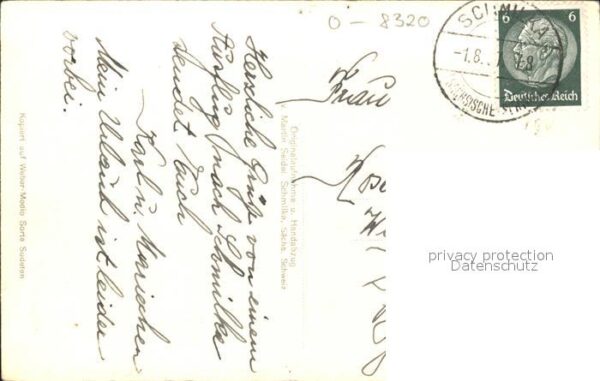 0-8320
SCHMILKA
-1.8.
7-8
SÄCHSISCHE
6 6
Deutsches Reich
Frau
Herzliche Grüße von einem
Ausflug nach Schmilka
sendet Euch
Karl u. Mariechen
Mein Urlaub ist leider
vorbei.
Originalaufnahme u. Handabzug
v. Martin Seidel, Schmilka, Sächs. Schweiz
Kopiert auf Weber-Modio Sorte Sudeten
privacy protection
Datenschutz